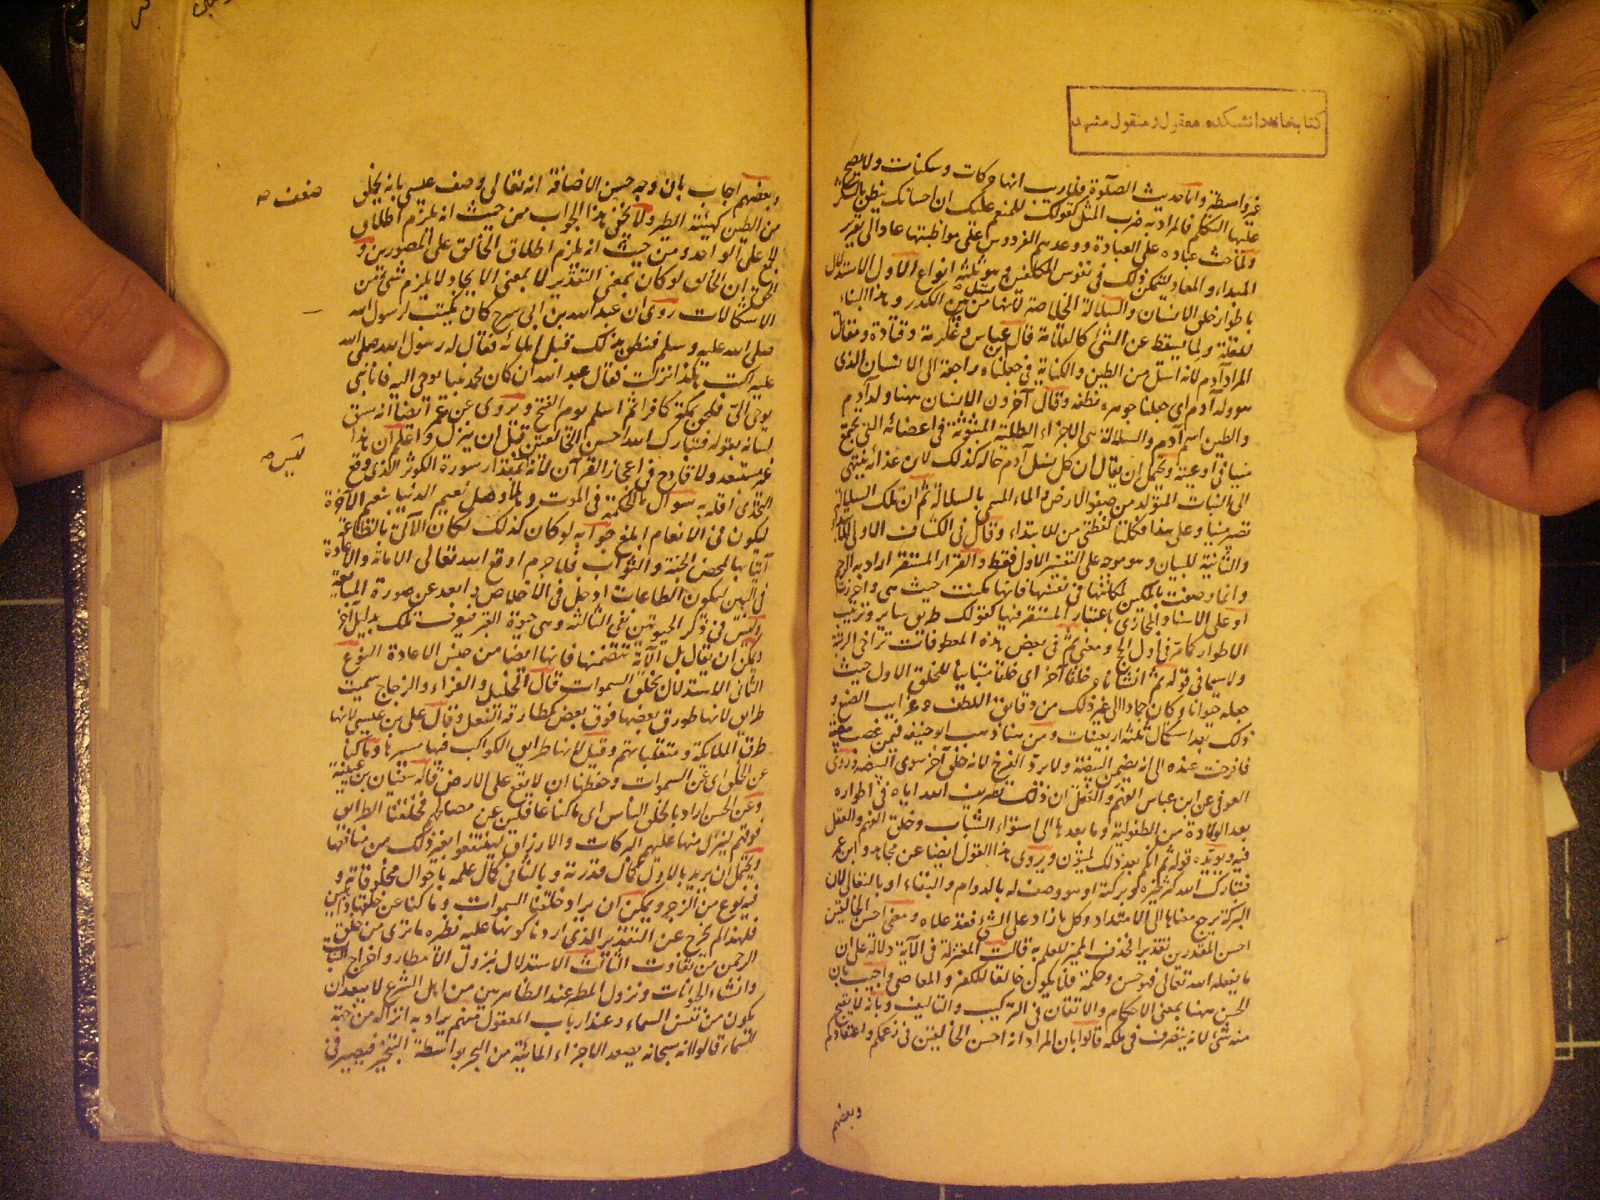 كتابخانه دانشكده معقول و منقول مشهد
غير واسطة واما حديث الصلوة فلا ريب انها حركات وسكنات ولا يصح
عليها التكلم فالمراد به ضرب المثل كقولك للمنعم عليك ان احسانك ينطق بالشكر
ولما حث عباده على العبادة ووعدهم الفردوس على مواظبتها عاد الى تقرير
المبداء والمعاد ليتمكن ذلك في نفوس المكلفين وهو ثلثة انواع الاول الاستدلال
باطوار خلق الانسان والسلالة الخلاصة لانها تسل من بين الكدر وهذا البناء
للقلة ولما يسقط عن الشئ كالقلامة قال ابن عباس وعكرمة وقتادة ومقاتل
المراد آدم لانه استل من الطين والكناية في جعلناه راجعة الى الانسان الذى
هو ولد آدم اى جعلنا جوهره نطفة وقال آخرون الانسان ههنا ولد آدم
والطين اسم آدم والسلالة هى الاجزاء الطينية المبثوثة في اعضائه التى تجتمع
منيا في اوعيته ويحتمل ان يقال ان كل نسل آدم حاله كذلك لان غذائه ينتهى
الى النبات المتولد من صفو الارض والماء المسمى بالسلالة ثم ان تلك السلالة
تصير منيا وعلى هذا فكلتا لفظتى من للابتداء وقال في الكشاف الاولى للابتداء
والثانية للبيان وهو موجه على التفسير الاول فقط والقرار المستقر اراد به الرحم
وانما وصفت بالمكين لمكانتها في نفسها فانها مكنت حيث هى واحرزت
او على الاسناد المجازى باعتبار المستقر فيها كقولك طريق ساير وترتيب
الاطوار كما مر في اول الحج ومعنى ثم في بعض هذه المعطوفات تراخى الرتبة
ولا سيما في قوله ثم انشأناه خلقا آخر اى خلقا مباينا للخلق الاول حيث
جعله حيوانا وكان جمادا الى غير ذلك من دقائق اللطف وغرائب الصنع و
ذلك بعد استكمال ثلثة اربعينات ومن هنا ذهب ابو حنيفة فيمن غصب بيضة
فافرخت عنده الى انه يضمن البيضة ولا يرد الفرخ لانه خلق آخر سوى البيضة وروى
العوفى عن ابن عباس الفهم والعقل ان ذلك تصريف الله اياه في اطواره
بعد الولادة من الطفولية وما بعدها الى استواء الشباب وخلق الفهم والعقل
فيه ويؤيده قوله ثم انكم بعد ذلك لميتون ويروى هذا القول ايضا عن مجاهد وابن عمر
فتبارك الله كثر خيره وبركته او هو وصف له بالدوام والبقاء او بالتعالى لان
البركة يرجع معناها الى الامتداد وكل ما زاد على الشئ فقد علاه ومعنى احسن الخالقين
احسن المقدرين تقديرا فحذف المميز للعلم به قالت المعتزلة في الآية دلالة على ان
ما يفعله الله تعالى فهو حسن وحكمة فلا يكون خالقا للكفر والمعاصى واجيب بان
الحسن ههنا بمعنى الاحكام والاتقان في التركيب والتاليف وبانه لا يقبح
منه شئ لانه يتصرف في ملكه قالوا بان المراد انه احسن الخالقين في زعمكم واعتقادكم
وبعضهم
وبعضهم اجاب بان وجه حسن الاضافة انه تعالى وصف عيسى بانه يخلق
من الطين كهيئة الطير ولا يخفى هذا الجواب من حيث انه يلزم اطلاق
الجمع على الواحد ومن حيث انه يلزم اطلاق الخالق على المصورين و
الحق ان الخالق لو كان بمعنى التقدير لا بمعنى الايجاد لا يلزم شئ من
الاشكالات روى ان عبد الله بن ابى سرح كان يكتب لرسول الله
صلى الله عليه وسلم فنطق بذلك قبل املائه فقال له رسول الله صلى الله
عليه اكتب هكذا انزلت فقال عبد الله ان كان محمد نبيا يوحى اليه فانا نبى
يوحى الى فلحق بمكة كافرا ثم اسلم يوم الفتح ويروى عن عمر ايضا انه سبق
لسانه بقوله فتبارك الله احسن الخالقين قبل ان ينزل واعلم ان هذا
غير مستبعد ولا قادح في اعجاز القرآن لانه بمقدار سورة الكوثر الذى وقع
التحدى اقله به سؤال ما الحكمة في الموت وهلا وصل نعيم الدنيا بنعيم الآخرة
ليكون في الانعام ابلغ جوابه لو كان كذلك لكان الآتى بالطاعة
آتيا بها لمحض الجنة والثواب فلا جرم اوقع الله تعالى الاماتة والاعادة
في البين ليكون الطاعات ادخل في الاخلاص وابعد عن صورة المبايعة
وليس في ذكر الحيوتين نفى الثالثة وهى حيوة القبر فيعرف تلك بدليل آخر
ويمكن ان يقال بل الآية تتضمنها فانها ايضا من جنس الاعادة النوع
الثانى الاستدلال بخلق السموات قال الخليل والفراء والزجاج سميت
طرايق لانها طورق بعضها فوق بعض كمطارقة النعل وقال على بن عيسى لانها
طرق الملائكة ومتقلباتهم وقيل لانها طرايق الكواكب فيها مسيرها وما كنا
عن الخلق اى عن السموات وحفظها ان لا يقع على الارض قاله سفيان بن عيينة
وعن الحسن اراد بالخلق الناس اى ما كنا غافلين عن مصالحهم فخلقنا الطرايق
فوقهم لينزل منها عليهم البركات والارزاق لينتفعوا بغير ذلك من منافعها
ويحتمل ان يريد بالاول كمال قدرته وبالثانى كمال علمه باحوال مخلوقاته و
فيه نوع من الزجر ويمكن ان يراد خلقنا السموات وما كنا عن خلقها ذاهلين
فلهذا لم تخرج عن التقدير الذى اردنا كونها عليه نظيره ما ترى من خلق
الرحمن من تفاوت الثالث الاستدلال بنزول الامطار واخراج النبات
وانشاء الحيوانات ونزول المطر عند الظاهريين من اهل الشرع لا يبعد ان
يكون من نفس السماء وعند ارباب المعقول منهم يراد به انزاله من جهة
السماء قالوا انه سبحانه يصعد الاجزاء المائية من البحر بواسطة التبخير فيصير في
ضعف صه